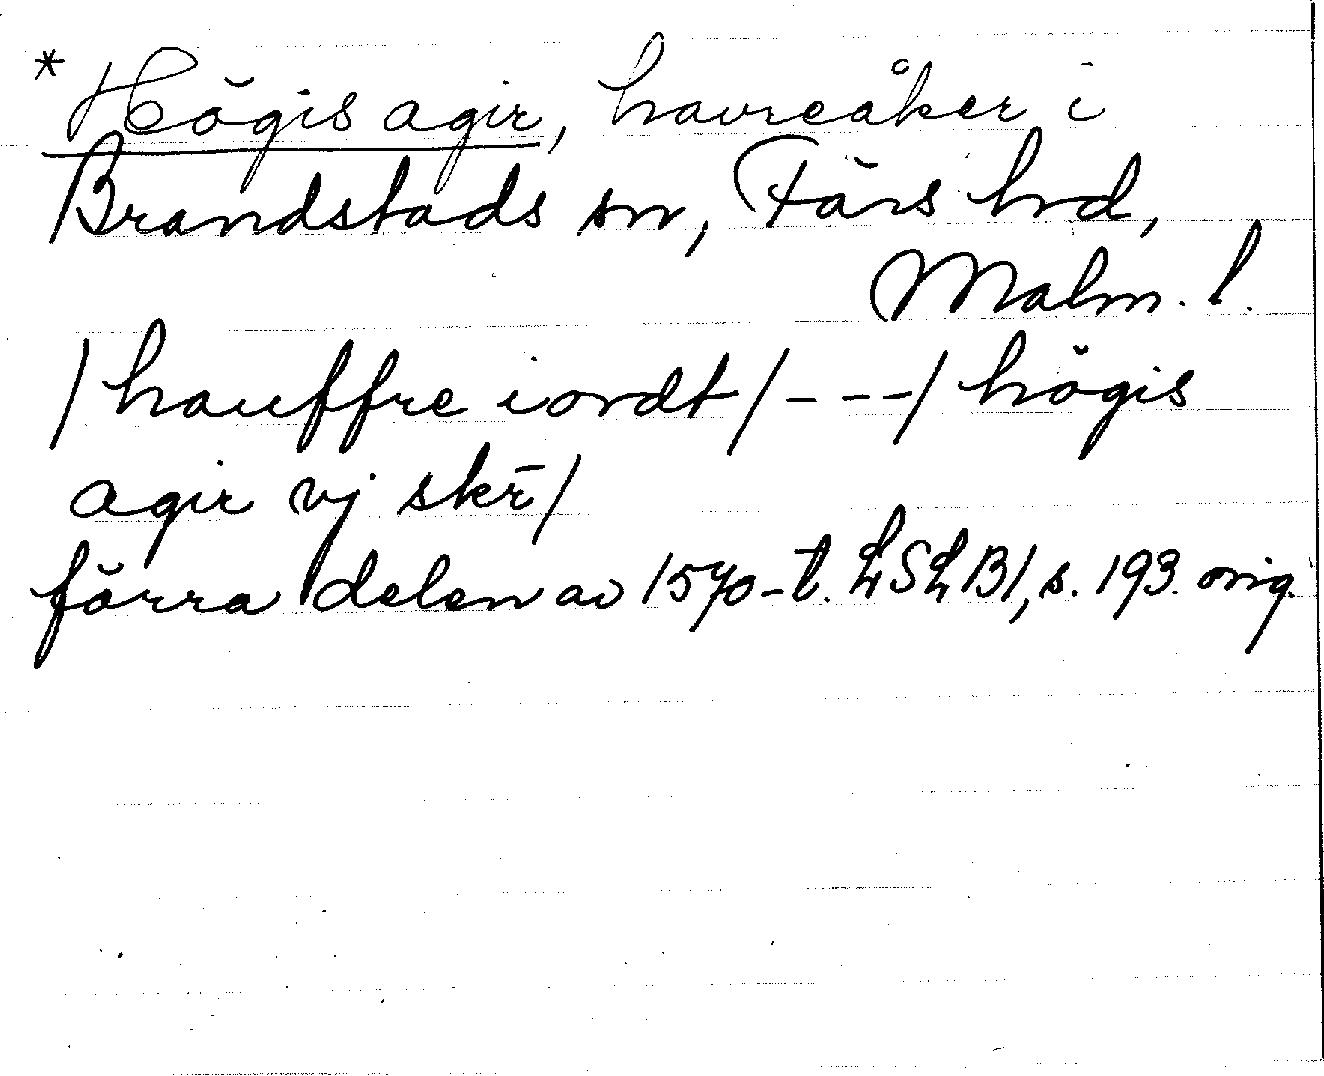 * Högis agir, havreåker i
Brandstads sn, Färs hrd,
Malm. l.
/hauffre iordt/ - - -/ högis
agir vj skr̄/
förra delen av 1570-t. LSLB1, s. 193. orig.